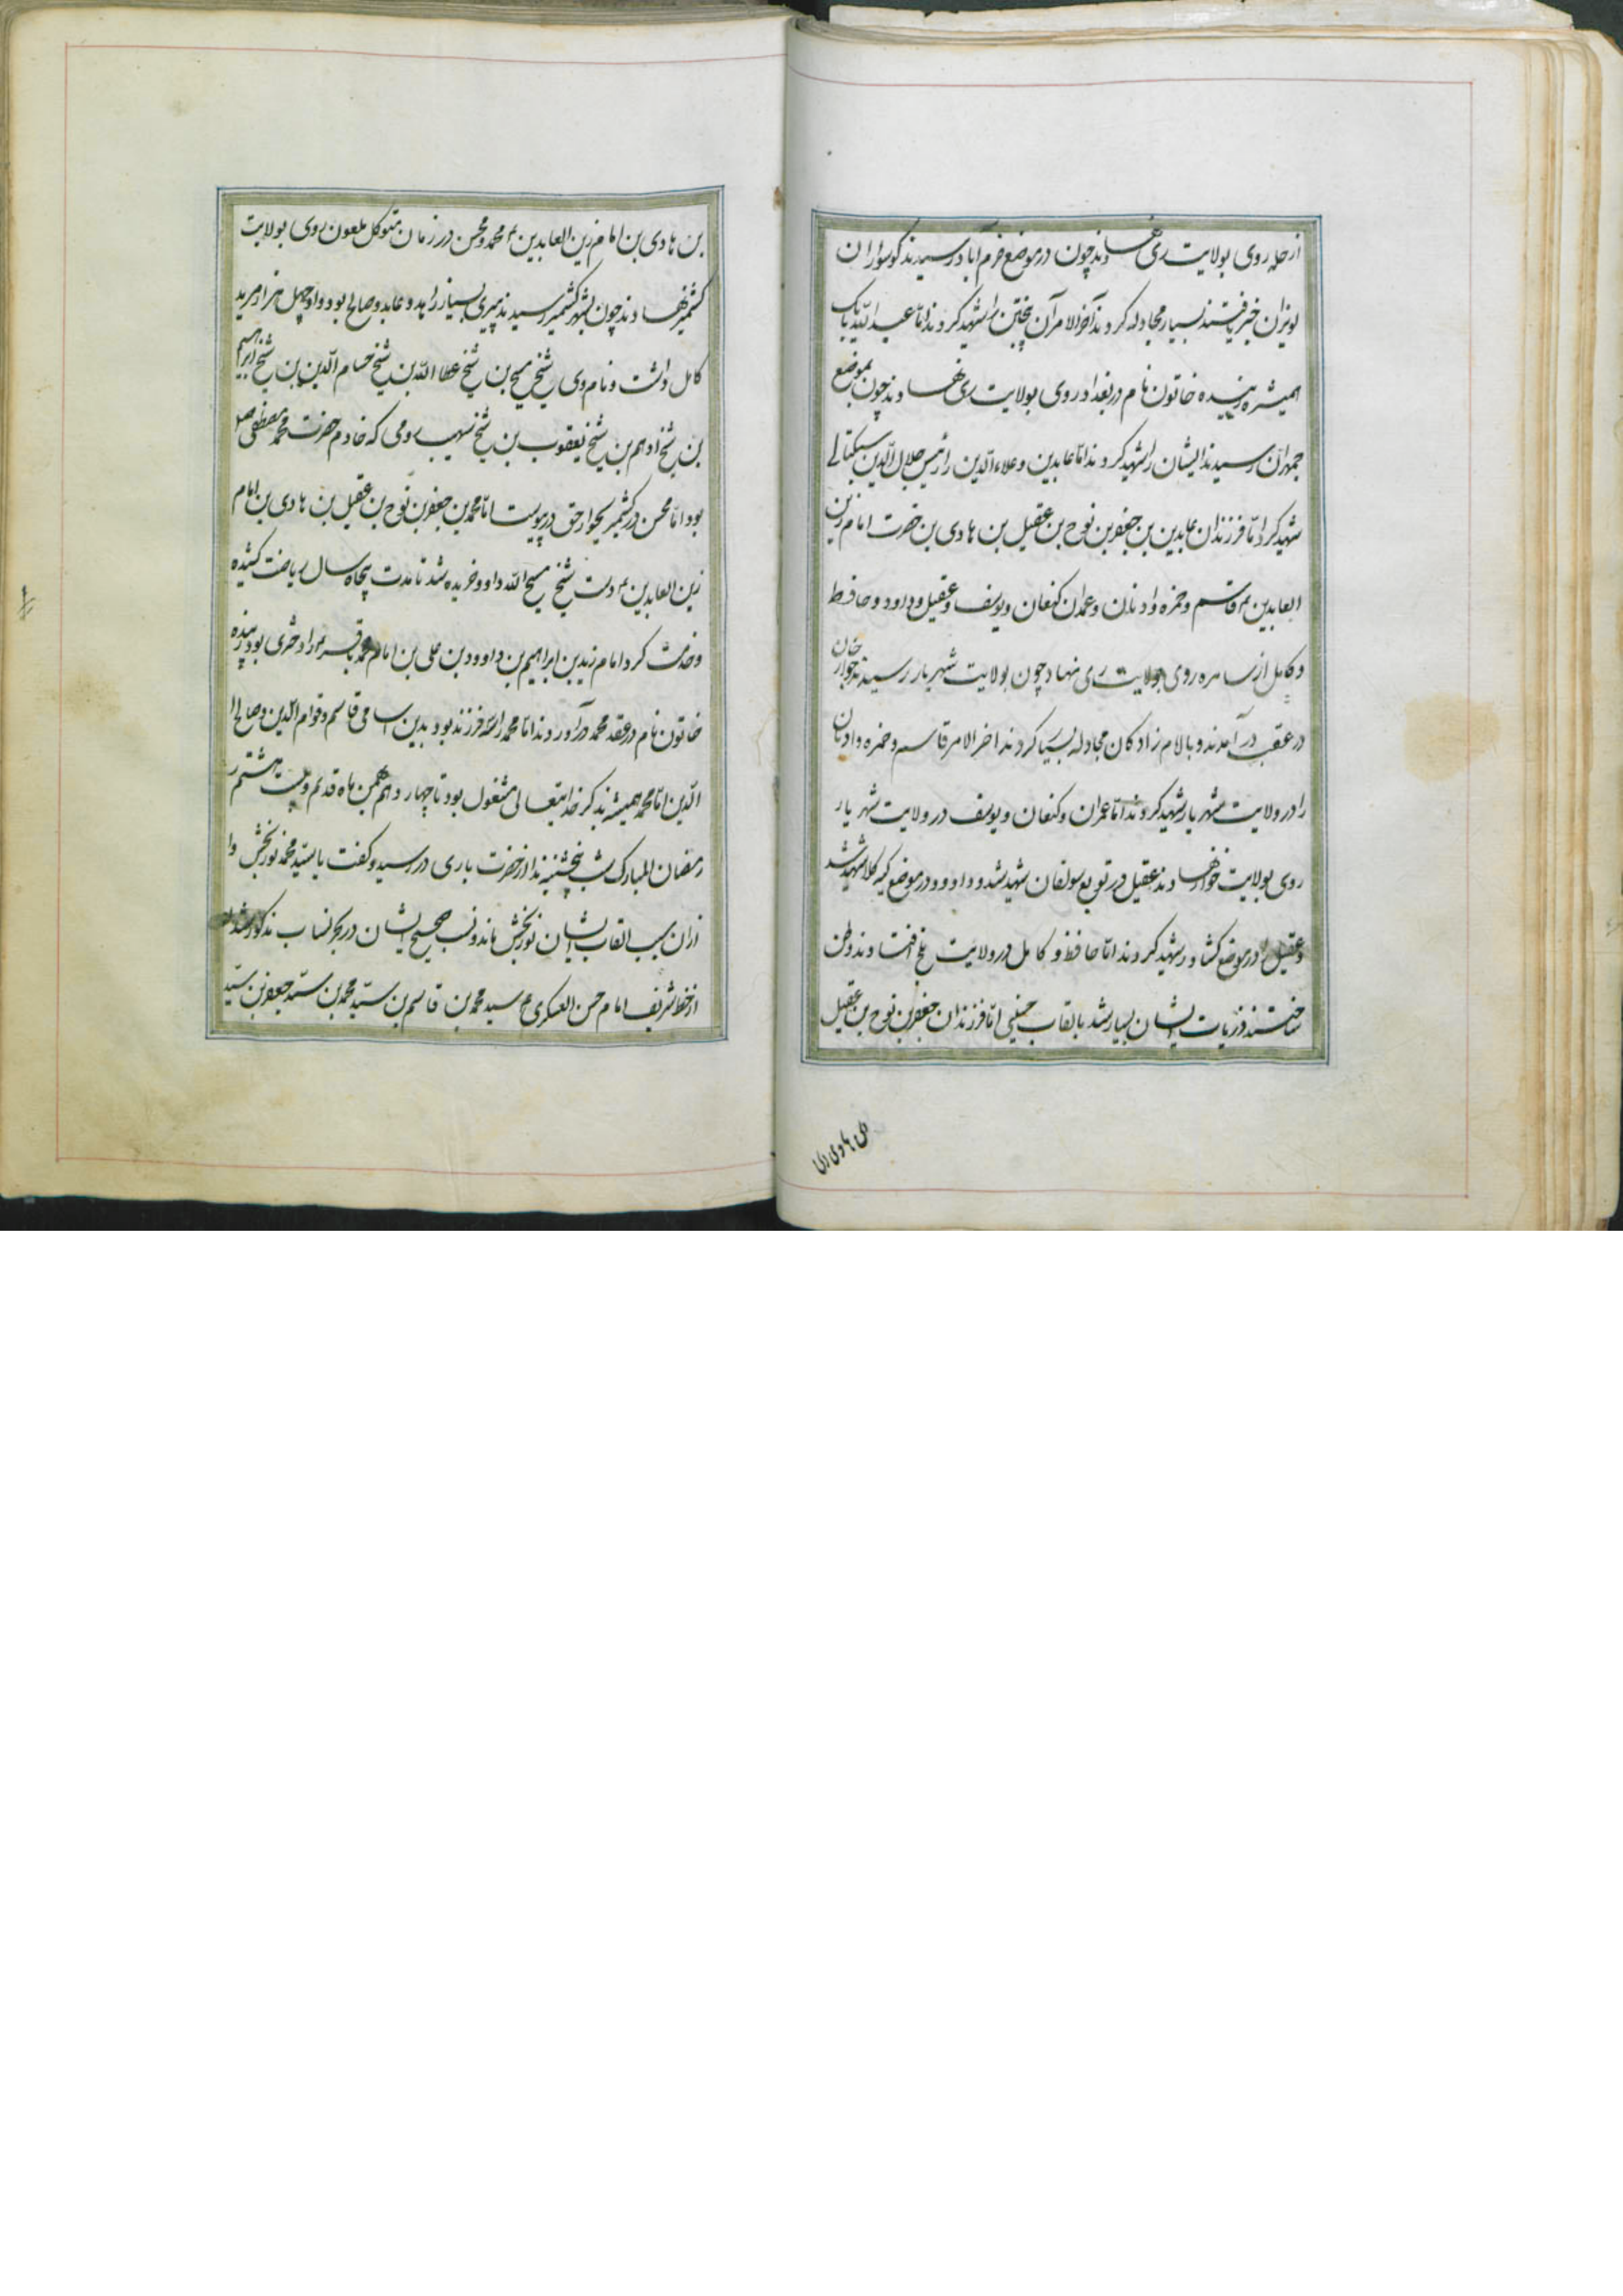 از حله روی بولایت ری نهادند چون در موضع خرم آباد رسیدند کوسواران
لونزان خبر یافتند بسیار مجادله کردند آخر الامر آن پنجتن را شهید کردند اما عبدالله با یک
همشیره زبیده خاتون نام در بغداد روی بولایت ری نهادند چون بموضع
جمهران رسیدند ایشان را شهید کردند اما عابدین و علاءالدین را رئیس جلال الدین
شهید کرد اما فرزندان عابدین بن جعفر بن نوح بن عقیل بن هادی بن حضرت امام زین
العابدین قاسم و حمزه و ادنان و عمران کنعان و یوسف و عقیل و داود و حافظ
و کامل از سامره روی بولایت ری نهاد چون بولایت شهریار رسیدند خوارخان
در عقب در آمدند و بالام زادکان مجادله بسیار کردند اخر الامر قاسم و حمزه و ادنان
را در ولایت شهریار شهید کردند اما عمران و کنعان و یوسف در ولایت شهریار
روی بولایت خوار نهادند عقیل در توابع سولقان شهید شد و داوود در موضع کیه کلا شهید شد
و عقیل در موضع کشاور شهید کردند اما حافظ و کامل در ولایت بلخ افتادند و وطن
ساختند ذریات ایشان بسیار شد بالقاب حسینی اما فرزندان جعفر بن نوح بن عقیل
بن هادی بن
بن هادی بن امام زین العابدین محمد و محسن در زمان متوکل ملعون روی بولایت
کشمیر نهادند چون بشهر کشمیر رسیدند پیری بسیار زاهد و عابد و صالح بود و او چهل هزار مرید
کامل داشت و نام وی شیخ مسیح بن شیخ عطا الله بن شیخ حسام الدین بن شیخ ابراهیم
بن شیخ ادهم بن شیخ یعقوب بن شیخ صهیب رومی که خادم حضرت محمد مصطفی صلی
بود اما محسن در کشمیر بجوار حق در پیوست اما محمد بن جعفر بن نوح بن عقیل بن هادی بن امام
زین العابدین دست شیخ مسیح الله داد و خریده شد تا مدت پنجاه سال ریاضت کشیده
و خدمت کرد امام زید بن ابراهیم بن داوود بن علی بن امام محمد باقر را دختری بود زبیده
خاتون نام در عقد محمد در آوردند اما محمد را سه فرزند بود بدین اسامی قاسم و قوام الدین و صالح ا
الدین اما محمد همیشه بذکر خدایتعالی مشغول بود تا چهاردهم بهمن ماه قدیم و بیست هشتم
رمضان المبارک شب پنجشنبه ندا از حضرت باری در رسید و گفت یا سید محمد نوربخش و ا
ازان سبب القاب ایشان نوربخش ماند و نسب صحیح ایشان در بحر انساب مذکور شد
از خط شریف امام حسن العسکری ع سید محمد بن قاسم بن سید محمد بن سید جعفر بن سید